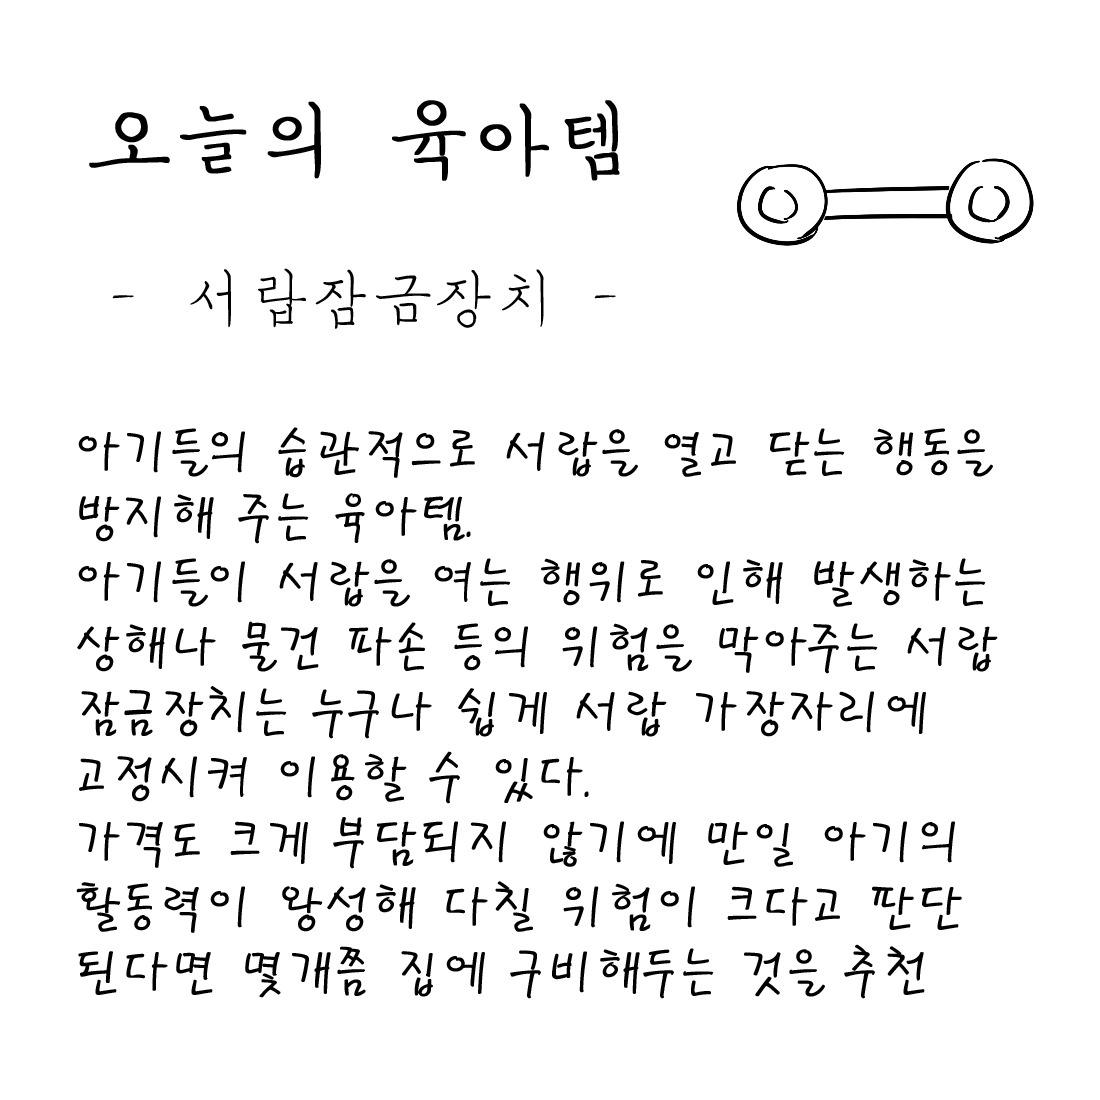 오늘의 육아템
- 서랍잠금장치 -
아기들의 습관적으로 서랍을 열고 닫는 행동을
방지해 주는 육아템.
아기들이 서랍을 여는 행위로 인해 발생하는
상해나 물건 파손 등의 위험을 막아주는 서랍
잠금장치는 누구나 쉽게 서랍 가장자리에
고정시켜 이용할 수 있다.
가격도 크게 부담되지 않기에 만일 아기의
활동력이 왕성해 다칠 위험이 크다고 판단
된다면 몇개쯤 집에 구비해두는 것을 추천